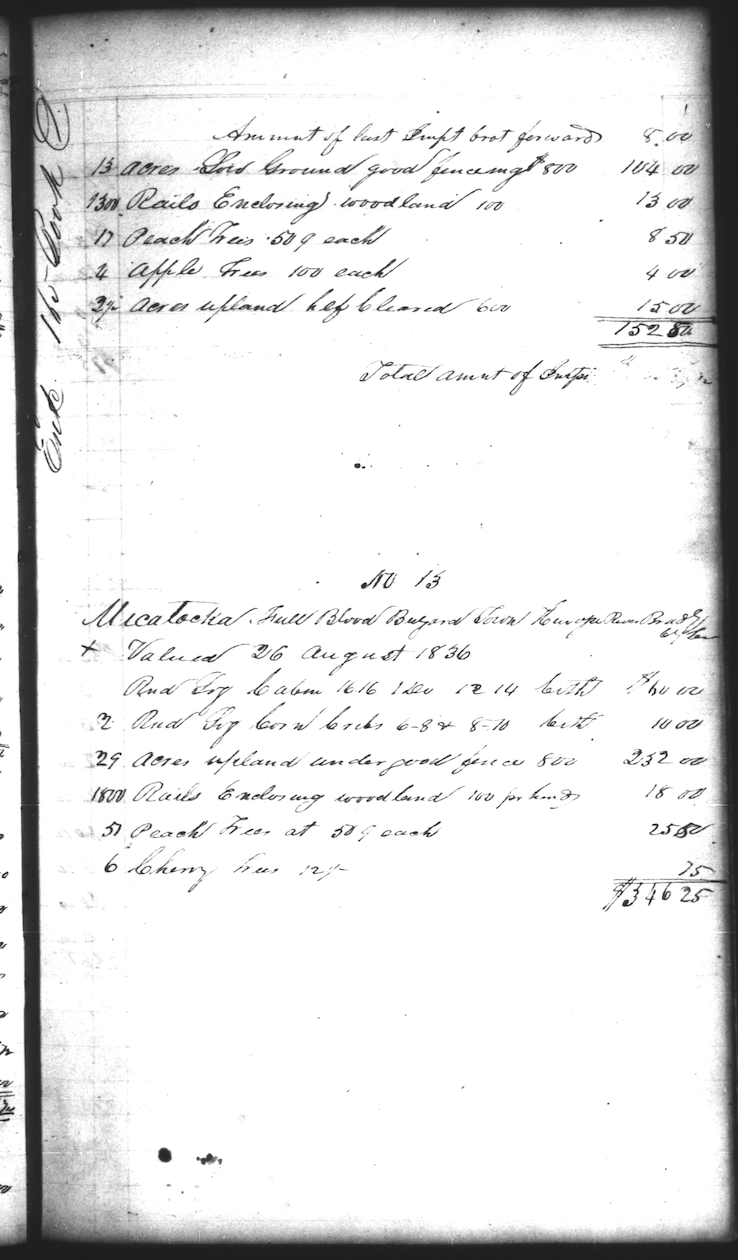 Amount of last Impt brot forward 8.00
13 acres Low Ground good fencing $800 104 00
1300 Rails Enclosing woodland 100 13 00
17 Peach Trees 50 ¢ each 8 50
4 Apple Trees 100 each 4 00
2½ acres upland hlf Cleared 600 15 00
152 50
Total Amnt of Impts
No 13
Micatocka Full Blood Buzard Town River
+ Valued 26 August 1836
Rnd Log Cabin 16 16 1 Do 12 14 both $40 00
2 Rnd Log Corn Cribs 6-8 & 8-10 both 10 00
29 acres upland under good fence 800 232 00
1800 Rails Enclosing woodland 100 pr hund 18 00
51 Peach Trees at 50 ¢ each 25 50
6 Cherry Trees 12½ 75
$346 25
Book D